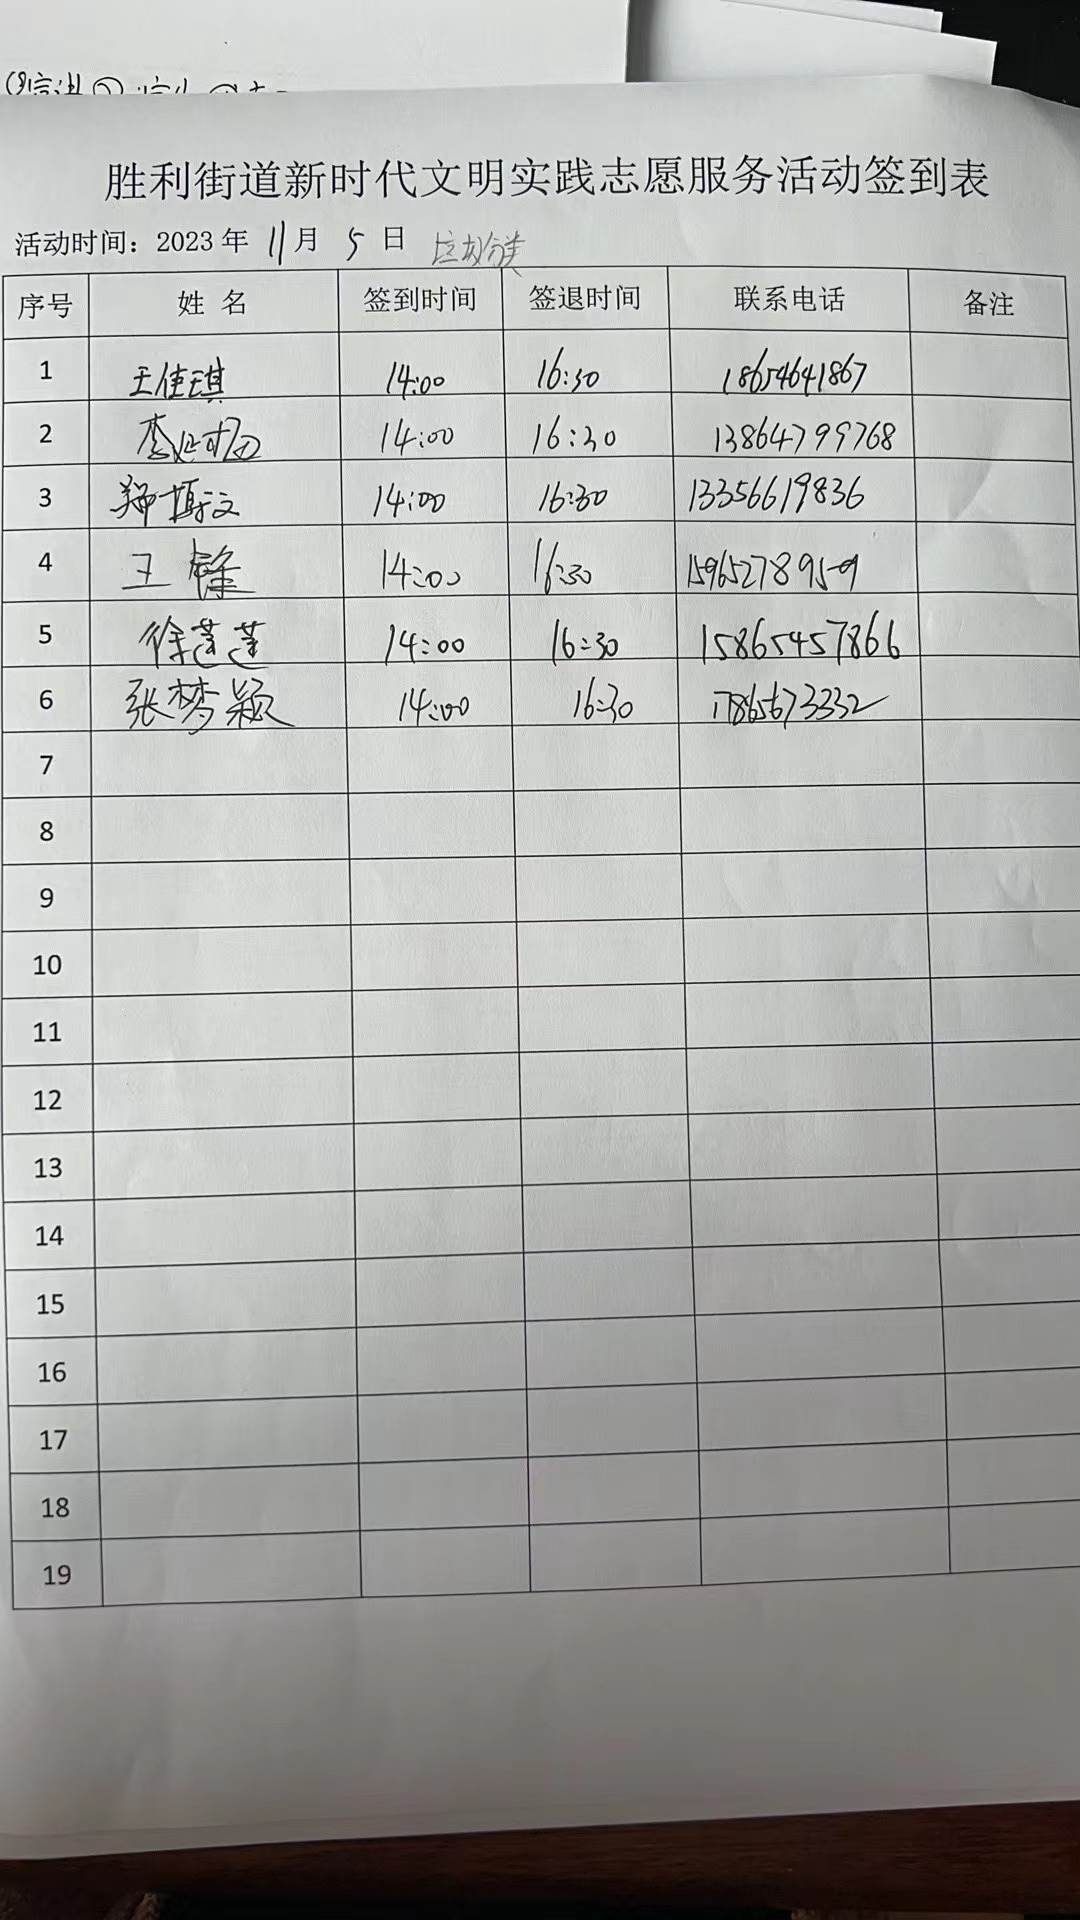 胜利街道新时代文明实践志愿服务活动签到表
活动时间：2023年 11月 5日 垃圾分类
序号 姓名 签到时间 签退时间 联系电话 备注
1 王佳琪 14:00 16:30 18654641867
2 14:00 16:30 13864799768
3 郑博文 14:00 16:30 13356619836
4 王锋 14:00 16:30 15965278959
5 徐莲莲 14:00 16:30 15865457866
6 张梦颖 14:00 16:30 17865673332
7
8
9
10
11
12
13
14
15
16
17
18
19